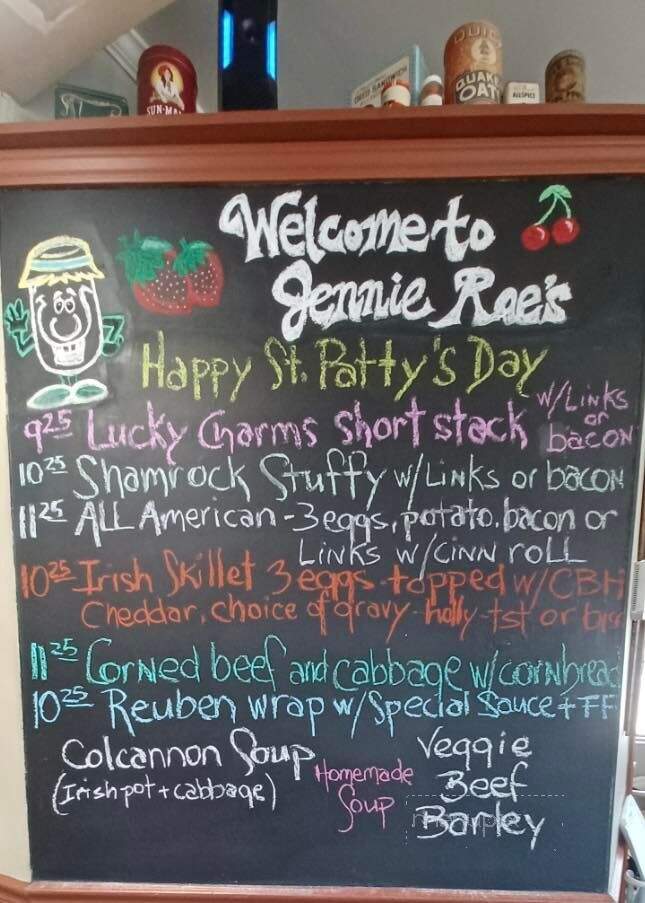 SUN-MA
QUICK
QUAKE
OAT
ALLSPICE
Welcome to
Jennie Rae's
Happy St. Patty's Day
9 25 Lucky Charms Short stack w/Links
or
bacon
10 25 Shamrock Stuffy w/Links or bacon
11 25 ALL American - 3 eggs, potato, bacon or
Links w/cinn roll
10 25 Irish Skillet 3 eggs topped w/CBH
Cheddar, choice of gravy - holly - tst or bis
11 25 Corned beef and cabbage w/cornbread
10 25 Reuben wrap w/Special Sauce + FF
Colcannon Soup
(Irish pot + cabbage)
Homemade
Soup
Veggie
Beef
Barley